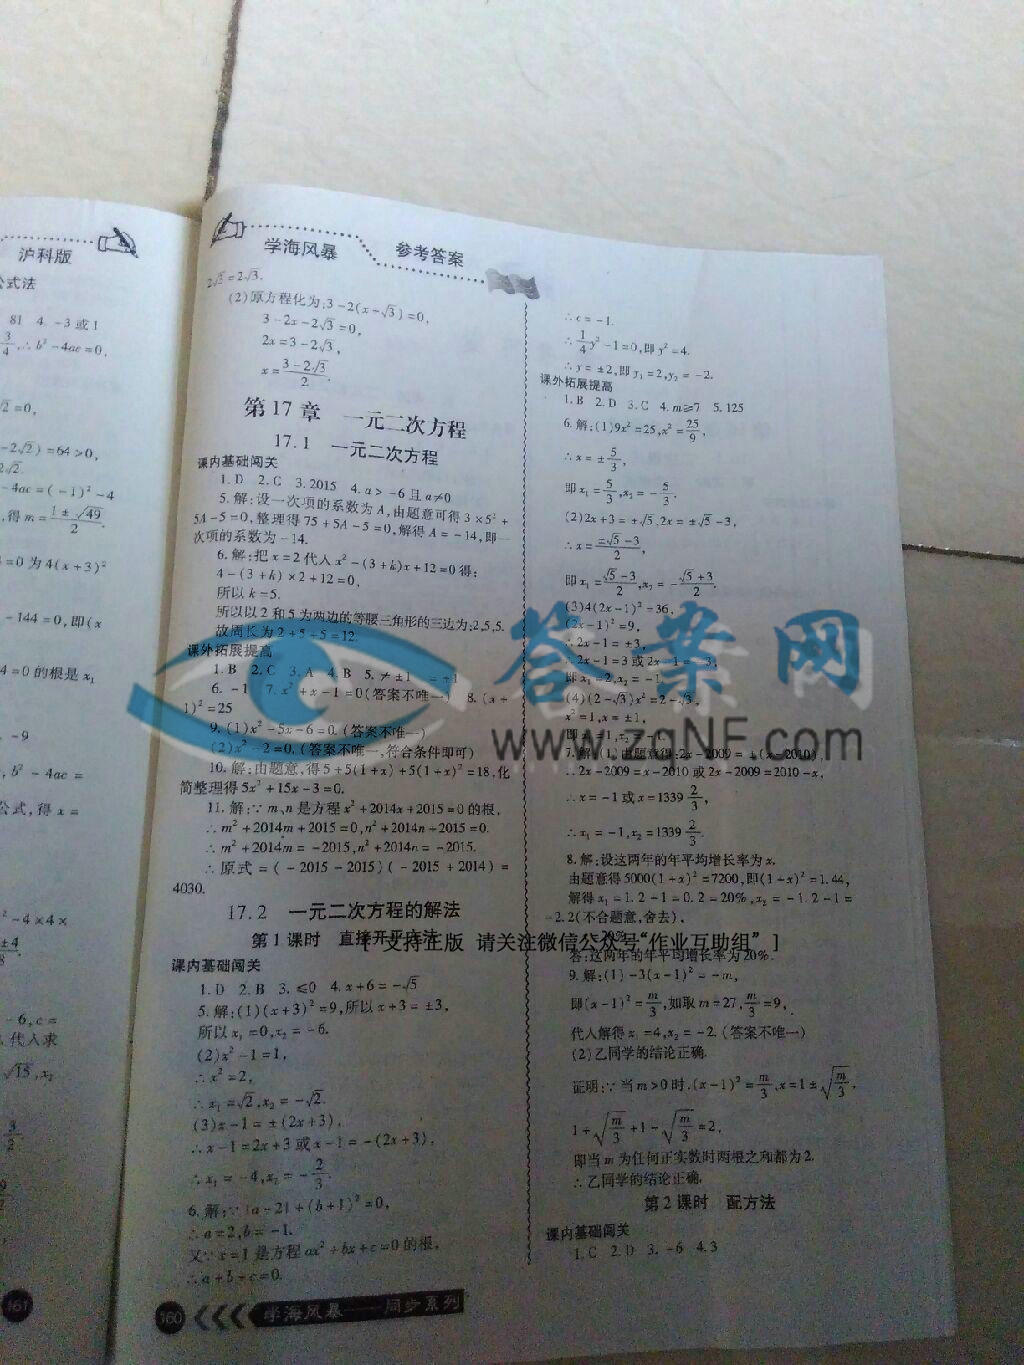 沪科版
公式法
81 4. -3或1
3/4, ∴b²-4ac=0.
√2=0,
-2√2)=64>0,
2√2.
-4ac=(-1)²-4
,得m=(1±√49)/2.
=0为4(x+3)²
-144=0,即(x
4=0的根是x₁
, -9
, b²-4ac=
公式,得x=
²-4×4×
-6,c=
,代入求
√15,x₂
3/2.
161
学海风暴 参考答案
2√3=2√3.
(2)原方程化为:3-2(x-√3)=0,
3-2x-2√3=0,
2x=3-2√3,
x=(3-2√3)/2.
第17章 一元二次方程
17.1 一元二次方程
课内基础闯关
1. D 2. C 3. 2015 4. a>-6且a≠0
5. 解:设一次项的系数为A,由题意可得3×5²+
5A-5=0,整理得75+5A-5=0,解得A=-14,即一
次项的系数为-14.
6. 解:把x=2代入x²-(3+k)x+12=0得:
4-(3+k)×2+12=0,
所以k=5.
所以以2和5为两边的等腰三角形的三边为:2,5,5.
故周长为2+5+5=12.
课外拓展提高
1. B 2. C 3. A 4. B 5. ≠±1 =±1
6. -1 7. x²+x-1=0(答案不唯一) 8. (x+
1)²=25
9. (1)x²-5x-6=0. (答案不唯一)
(2)x²-2=0. (答案不唯一,符合条件即可)
10. 解:由题意,得5+5(1+x)+5(1+x)²=18,化
简整理得5x²+15x-3=0.
11. 解:∵m,n是方程x²+2014x+2015=0的根,
∴m²+2014m+2015=0,n²+2014n+2015=0.
∴m²+2014m=-2015,n²+2014n=-2015.
∴原式=(-2015-2015)(-2015+2014)=
4030.
17.2 一元二次方程的解法
第1课时 直接开平方法
课内基础闯关
1. D 2. B 3. ≤0 4. x+6=-√5
5. 解:(1)(x+3)²=9,所以x+3=±3,
所以x₁=0,x₂=-6.
(2)x²-1=1,
∴x²=2,
∴x₁=√2,x₂=-√2.
(3)x-1=±(2x+3),
∴x-1=2x+3或x-1=-(2x+3),
∴x₁=-4,x₂=-2/3.
6. 解:∵|a-2|+(b+1)²=0,
∴a=2,b=-1.
又∵x=1是方程ax²+bx+c=0的根,
∴a+b+c=0.
160 学海风暴——同步系列
∴c=-1.
∴1/4y²-1=0,即y²=4.
∴y=±2,即y₁=2,y₂=-2.
课外拓展提高
1. B 2. D 3. C 4. m≥7 5. 125
6. 解:(1)9x²=25,x²=25/9,
∴x=±5/3,
即x₁=5/3,x₂=-5/3.
(2)2x+3=±√5,2x=±√5-3,
∴x=(±√5-3)/2,
即x₁=(√5-3)/2,x₂=-(√5+3)/2.
(3)4(2x-1)²=36,
(2x-1)²=9,
∴2x-1=±3,
∴2x-1=3或2x-1=-3,
即x₁=2,x₂=-1.
(4)(2-√3)x²=2-√3,
x²=1,x=±1,
即x₁=1,x₂=-1.
7. 解:(1)由题意得:2x-2009=±(x-2010),
∴2x-2009=x-2010或2x-2009=2010-x,
∴x=-1或x=1339 2/3,
∴x₁=-1,x₂=1339 2/3.
8. 解:设这两年的年平均增长率为x.
由题意得5000(1+x)²=7200,即(1+x)²=1.44,
解得x₁=1.2-1=0.2=20%,x₂=-1.2-1=
-2.2(不合题意,舍去),
∴x=20%.
答:这两年的年平均增长率为20%.
9. 解:(1)-3(x-1)²=-m,
即(x-1)²=m/3,如取m=27,m/3=9,
代入解得x₁=4,x₂=-2. (答案不唯一)
(2)乙同学的结论正确.
证明:∵当m>0时,(x-1)²=m/3,x=1±√(m/3),
1+√(m/3)+1-√(m/3)=2,
即当m为任何正实数时两根之和都为2.
∴乙同学的结论正确.
第2课时 配方法
课内基础闯关
1. C 2. D 3. -6 4. 3
答案网
www.zgNF.com
[“支持正版 请关注微信公众号“作业互助组”]